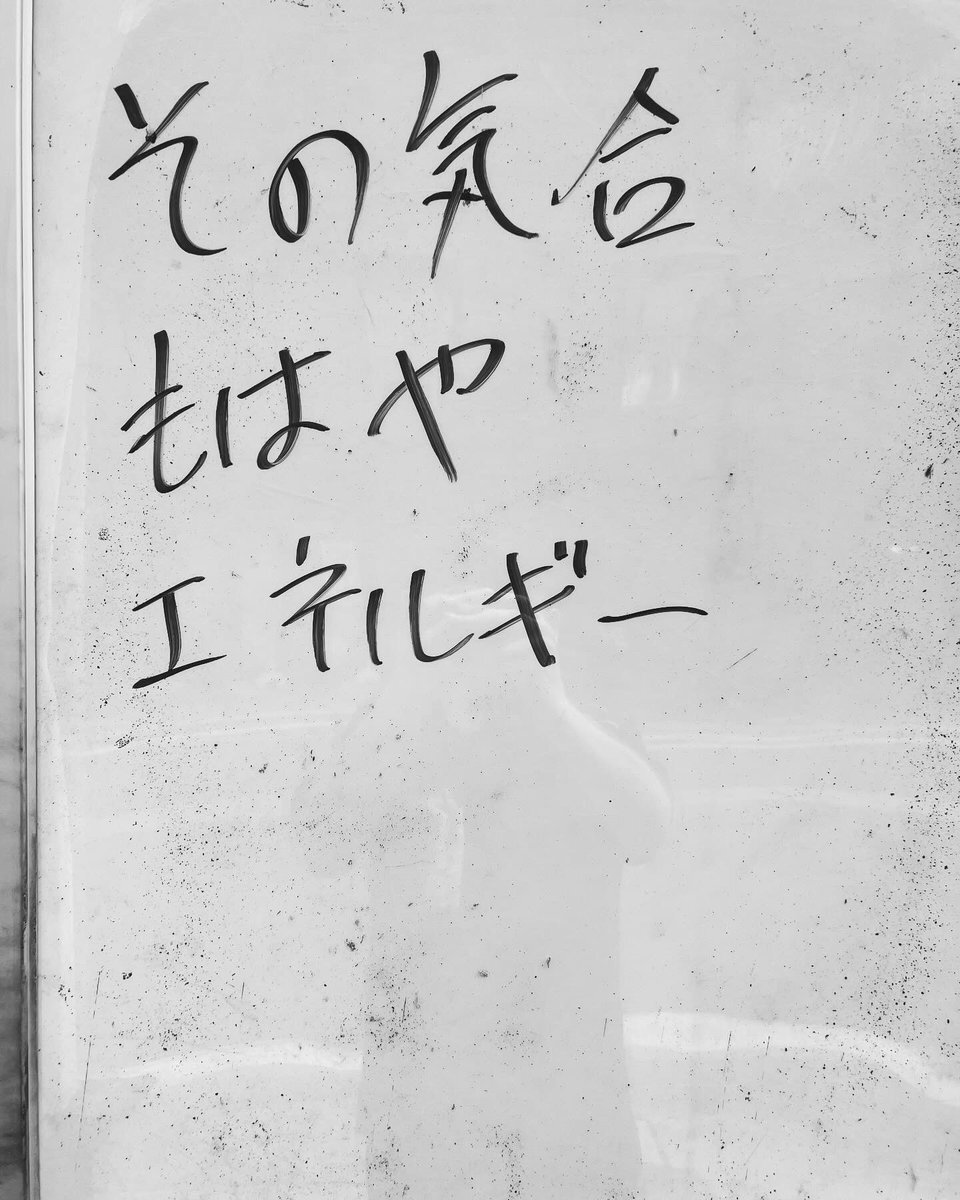 その気合
もはや
エネルギー